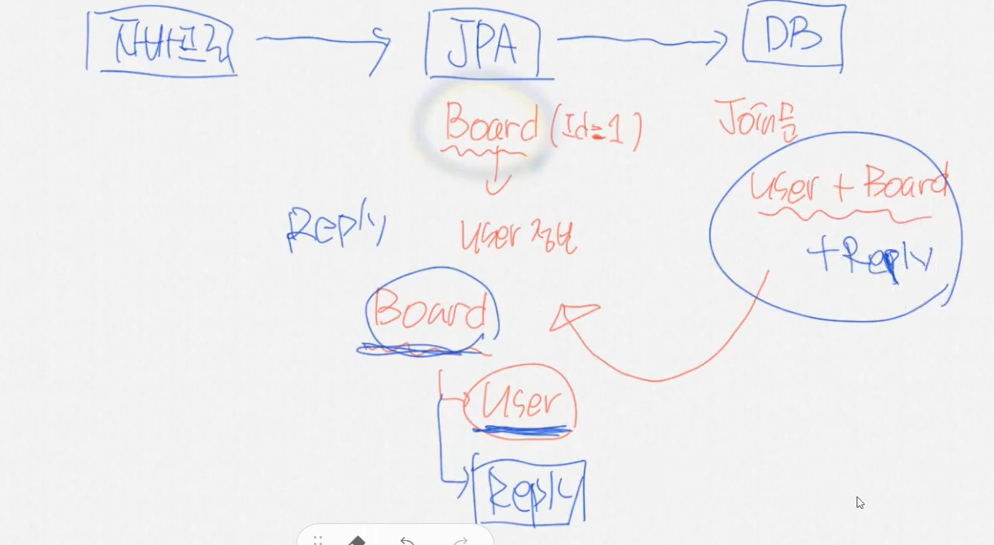 자바프로그램 JPA DB
Board (Id=1)
Join문
User + Board
+Reply
Reply
User 정보
Board
User
Reply